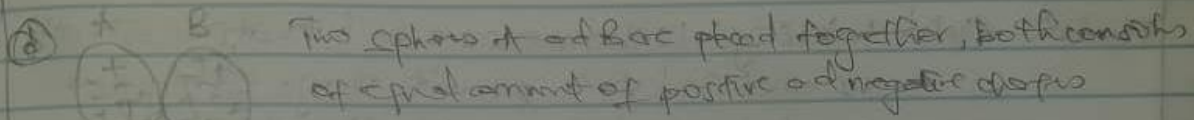 (d) A B Two sphers A ad B are placd together, both consists
of equal amount of postive ad negative charges